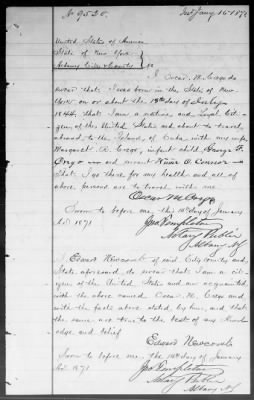 No 9520.
United States of America
State of New York
Albany City & County } ss
I, Oscar M. Crego do
swear that I was born in the State of New
York on or about the 19th day of July
1844, that I am a native, and Loyal Cit-
izen of the United States and about to travel
abroad to the Island of Cuba, with my wife
Margaret A. Crego, infant child George F.
Crego and servant O'Connor
That I go there for my health and all of
above persons are to travel with me.
Oscar M Crego
Sworn to before me, this 14th day of January
A.D. 1871
Jno Templeton
Notary Public
Albany NY
I, Edward Newcomb of said City County and
State aforesaid do swear that I am a cit-
izen of the United State and am acquainted
with the above named Oscar M. Crego and
with the facts above stated by him, and that
the same are true to the best of my Know-
edge and belief
Edward Newcomb
Sworn to before me, the 14th day of January
A.D. 1871
Jno Templeton
Notary Public
Albany NY